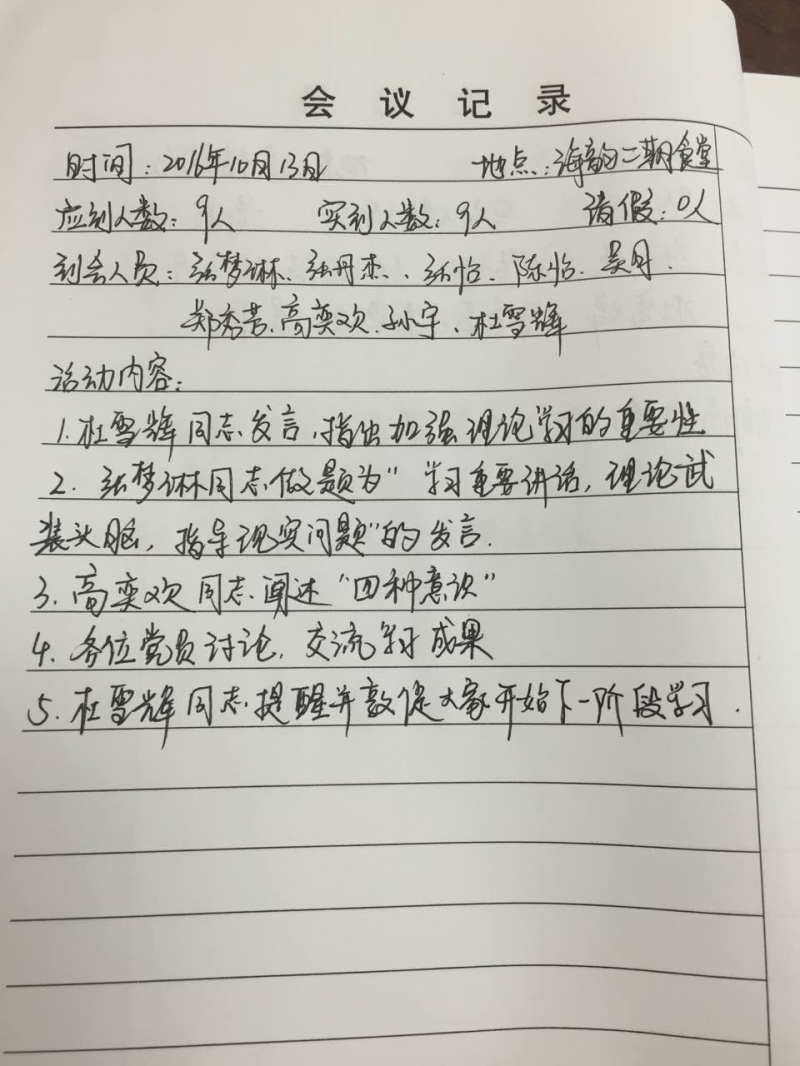 会议记录
时间：2016年10月13日 地点：海韵二期食堂
应到人数：9人 实到人数：9人 请假：0人
到会人员：张梦琳、张丹杰、张怡、陈怡、吴丹、
郑秀芳、高奕欢、孙宇、杜雪辉
活动内容：
1.杜雪辉同志发言，指出加强理论学习的重要性
2.张梦琳同志做题为“学习重要讲话，理论武
装头脑，指导现实问题”的发言.
3.高奕欢同志阐述“四种意识”
4.各位党员讨论，交流学习成果
5.杜雪辉同志提醒并敦促大家开始下一阶段学习.